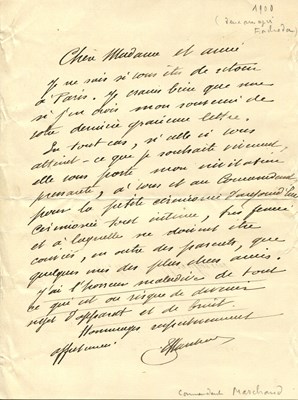 1908
Chère Madame et amie
Je ne sais si vous êtes de retour
à Paris. Je crains bien que non
si j'en crois mon souvenir de
votre dernière gracieuse lettre.
En tout cas, si celle ci vous
atteint - ce que je souhaite vivement,
elle vous porte mon invitation
pressante, à vous et au Commandant
pour la petite cérémonie d'aujourd'hui
Cérémonie tout intime, très fermée
et à laquelle ne doivent être
conviés, en outre des parents, que
quelques uns des plus chers amis.
J'ai l'horreur maladive de tout
ce que est ou risque de devenir
sujet d'apparat et de bruit.
Hommages respectueusement
affectueux!
Commandant Marchand